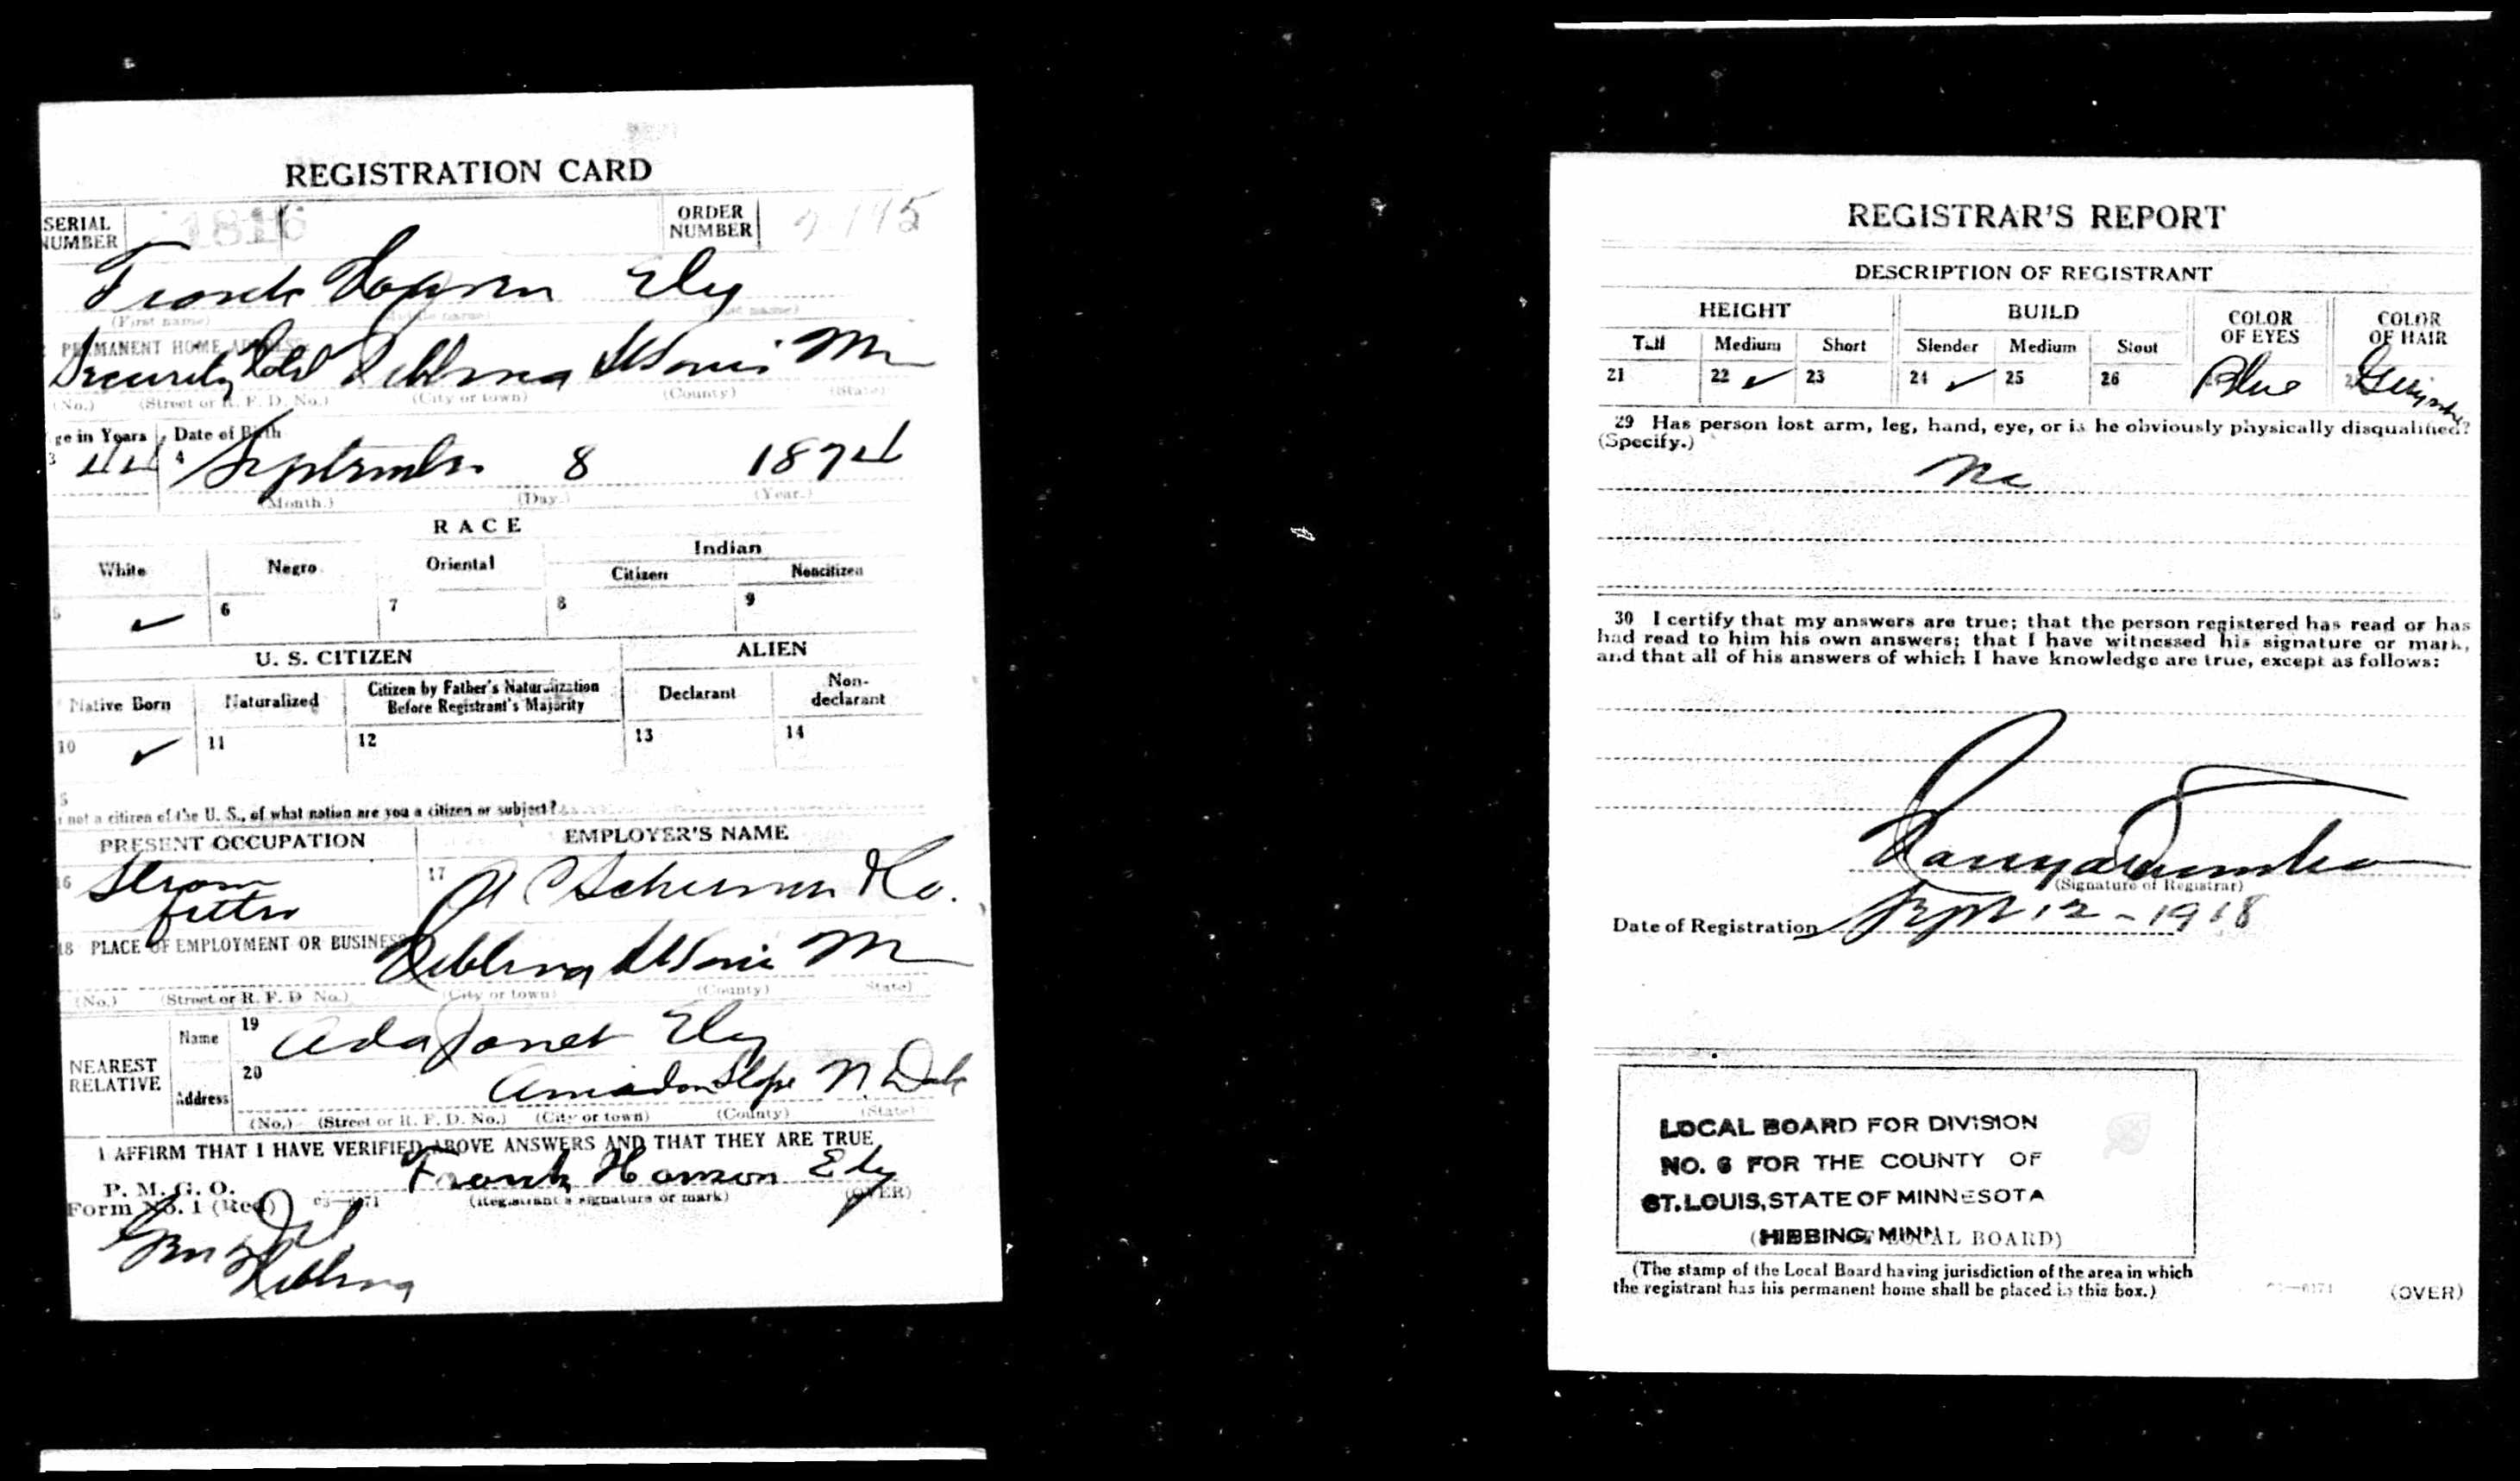 REGISTRATION CARD
SERIAL NUMBER 1816 ORDER NUMBER
Frank Ely
(First name) (Middle name) (Last name)
PERMANENT HOME ADDRESS:
Security Hotel Hibbing St Louis M
(No.) (Street or R. F. D. No.) (City or town) (County) (State)
ge in Years Date of Birth
3 44 4 September 8 1874
(Month.) (Day.) (Year.)
RACE
White Negro Oriental Indian
Citizen Noncitizen
5 ✓ 6 7 8 9
U. S. CITIZEN ALIEN
Native Born Naturalized Citizen by Father's Naturalization Before Registrant's Majority Declarant Non-declarant
10 ✓ 11 12 13 14
5
not a citizen of the U. S., of what nation are you a citizen or subject?
PRESENT OCCUPATION EMPLOYER'S NAME
16 Steam fitter 17 Co.
18 PLACE OF EMPLOYMENT OR BUSINESS
Hibbing St Louis M
(No.) (Street or R. F. D. No.) (City or town) (County) State)
NEAREST RELATIVE
Name 19 Ada Janet Ely
Address 20 Amidon Slope N. Dak
(No.) (Street or R. F. D. No.) (City or town) (County) (State)
I AFFIRM THAT I HAVE VERIFIED ABOVE ANSWERS AND THAT THEY ARE TRUE
P. M. G. O.
Form No. 1 (Red) Frank Hanson Ely
(Registrant's signature or mark) (OVER)
Hibbing
REGISTRAR'S REPORT
DESCRIPTION OF REGISTRANT
HEIGHT BUILD COLOR OF EYES COLOR OF HAIR
Tall Medium Short Slender Medium Stout
21 22 ✓ 23 24 ✓ 25 26 Blue
29 Has person lost arm, leg, hand, eye, or is he obviously physically disqualified?
(Specify.)
No
30 I certify that my answers are true; that the person registered has read or has
had read to him his own answers; that I have witnessed his signature or mark,
and that all of his answers of which I have knowledge are true, except as follows:
(Signature of Registrar)
Date of Registration Sept 12 - 1918
LOCAL BOARD FOR DIVISION
NO. 6 FOR THE COUNTY OF
ST. LOUIS, STATE OF MINNESOTA
(HIBBING, MINN. LOCAL BOARD)
(The stamp of the Local Board having jurisdiction of the area in which
the registrant has his permanent home shall be placed in this box.)
(OVER)